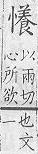 懩
以兩切
心所欲
也文
一